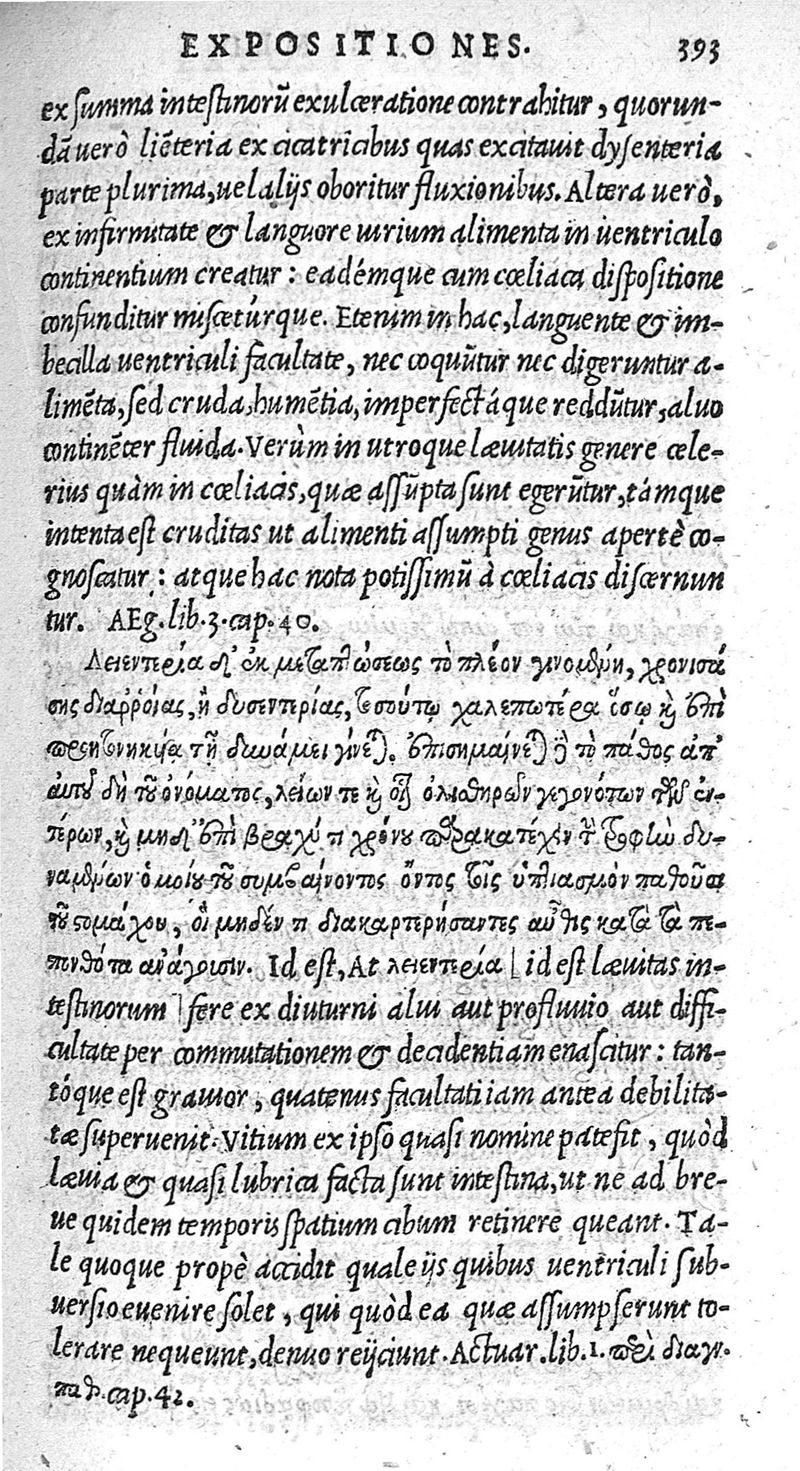 EXPOSITIONES. 393
ex summa intestinorũ exulceratione contrahitur, quorun-
dã uerò liẽteria ex cicatricibus quas excitauit dysenteria
parte plurima, uel alijs oboritur fluxionibus. Altera uerò,
ex infirmitate & languore uirium alimenta in uentriculo
continentium creatur: eadémque cum cœliaca dispositione
confunditur miscetúrque. Etenim in hac, languente & im-
becilla uentriculi facultate, nec coquũtur nec digeruntur a-
limẽta, sed cruda, humẽtia, imperfectáque reddũtur, aluo
continẽter fluida. Verùm in utroque læuitatis genere cele-
rius quàm in cœliacis, quæ assũpta sunt egerũtur, támque
intenta est cruditas ut alimenti assumpti genus apertè co-
gnoscatur: atque hac nota potissimũ à cœliacis discernun
tur. AEg. lib. 3. cap. 40.
Λειεντερία δ' ἐκ μεταπτώσεως τὸ πλέον γινομένη, χρονισά
σης διαῤῥοίας, ἢ δυσεντερίας, τοσούτῳ χαλεπωτέρα ὅσῳ καὶ ἐπὶ
προητονηκυίᾳ τῇ δυνάμει γίνεται. ἐπισημαίνεται δὲ τὸ πάθος ἀπ'
αὐτοῦ δὴ τοῦ ὀνόματος, λείων τε καὶ οἷον ὀλισθηρῶν γεγονότων τῶν ἐν-
τέρων, καὶ μηδ' ἐπὶ βραχύ τι χρόνου παρακατέχειν τὴν τροφὴν δυ-
ναμένων· ὁμοίου τοῦ συμβαίνοντος ὄντος τοῖς ὑπτιασμὸν παθοῦσι
τοῦ στομάχου, οἳ μηδέν τι διακαρτερήσαντες αὖθις κατὰ τὰ πε-
πονθότα ἀνάγουσιν. Id est, At λειεντερία [id est læuitas in-
testinorum] fere ex diuturni alui aut profluuio aut diffi-
cultate per commutationem & decidentiam enascitur: tan-
tóque est grauior, quatenus facultati iam antea debilita-
tæ superuenit. Vitium ex ipso quasi nomine patefit, quòd
læuia & quasi lubrica facta sunt intestina, ut ne ad bre-
ue quidem temporis spatium cibum retinere queant. Ta-
le quoque propè accidit quale ijs quibus uentriculi sub-
uersio euenire solet, qui quòd ea quæ assumpserunt to-
lerare nequeunt, denuo reijciunt. Actuar. lib. 1. περὶ διαγν.
παθ. cap. 42.